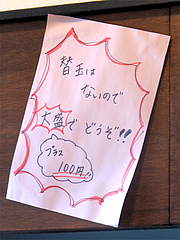 替玉は
ないので
大盛でどうぞ!!
プラス
100円!!